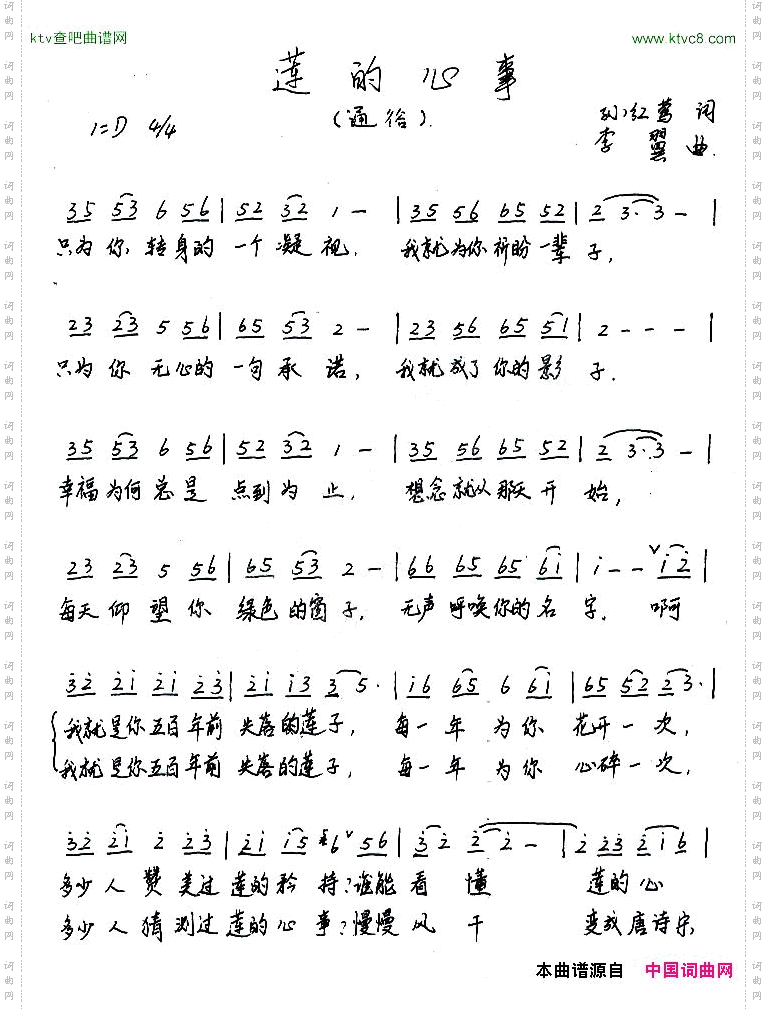 ktv查吧曲谱网 www.ktvc8.com
莲的心事
(通俗)
孙红莺 词
1=D 4/4
李翼 曲
35 53 6 56 | 52 32 1 - | 35 56 65 52 | 2 3·3 - |
只为你,转身的一个凝视, 我就为你祈盼一辈子,
23 23 5 56 | 65 53 2 - | 23 56 65 51 | 2 - - - |
只为你无心的一句承诺, 我就成了你的影子.
35 53 6 56 | 52 32 1 - | 35 56 65 52 | 2 3·3 - |
幸福为何总是点到为止, 想念就从那天开始,
23 23 5 56 | 65 53 2 - | 66 65 65 6i | i - - ∨i2̇ |
每天仰望你绿色的窗子, 无声呼唤你的名字. 啊
3̇2̇ 2̇i 2̇i 2̇3̇ | 2̇i i3 3 5· | i6 65 6 6i | 65 52 23· |
我就是你五百年前失落的莲子, 每一年为你花开一次,
我就是你五百年前失落的莲子, 每一年为你心碎一次,
3̇2̇ 2̇i 2̇ 2̇3̇ | 2̇i i5 #6∨ 56 | 3̇2̇ 2̇ 2̇ - | 2̇ 2̇3̇ 2̇i6 |
多少人赞美过莲的矜持?谁能看懂 莲的心
多少人猜测过莲的心事?慢慢风干 变成唐诗宋
本曲谱源自 中国词曲网